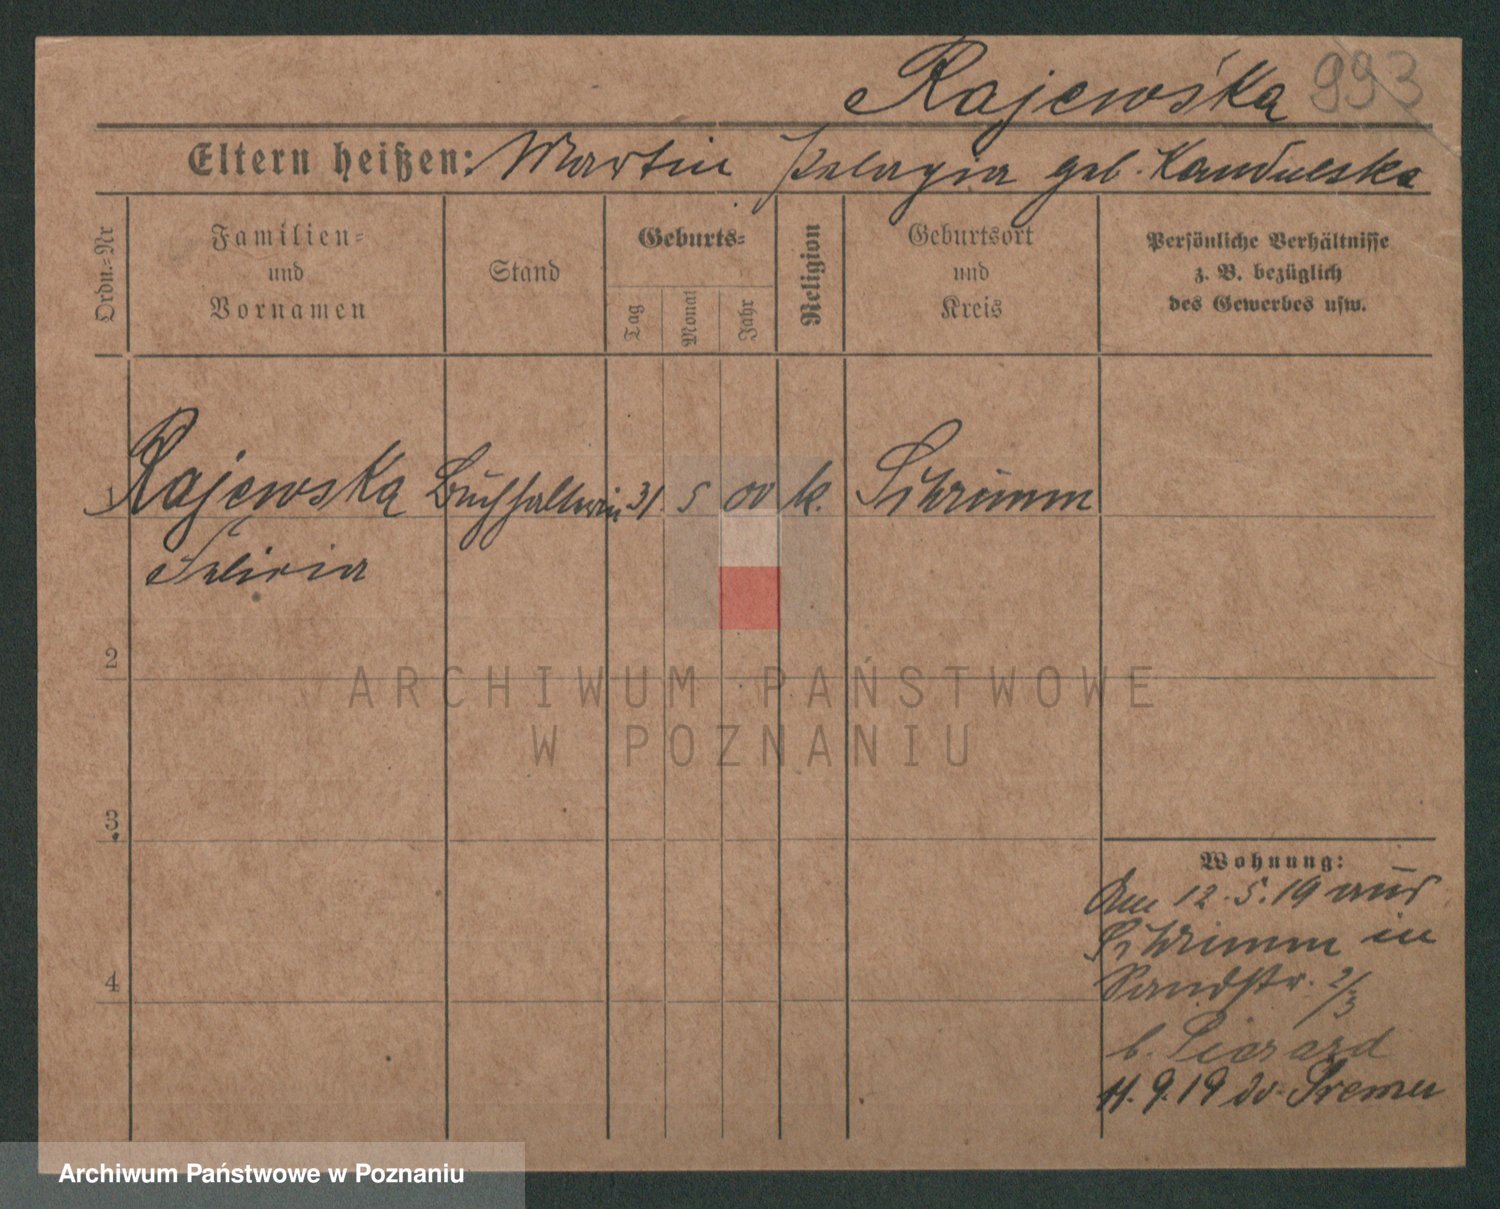 Rajewśka 993
Eltern heißen: Martin Pelagia geb. Kandulska
Ordn.-Nr
Familien-
und
Vornamen
Stand
Geburts-
Tag
Monat
Jahr
Religion
Geburtsort
und
Kreis
Persönliche Verhältnisse
z. B. bezüglich
des Gewerbes usw.
1 Rajewska Buchhalterin 31. 5 00 k. Schrimm
2
ARCHIWUM PAŃSTWOWE
W POZNANIU
3
Wohnung:
Am 12.5.19 aus
Schrimm in
4
Sandstr. 2/3
b.
11.9.19 Sremu
Archiwum Państwowe w Poznaniu